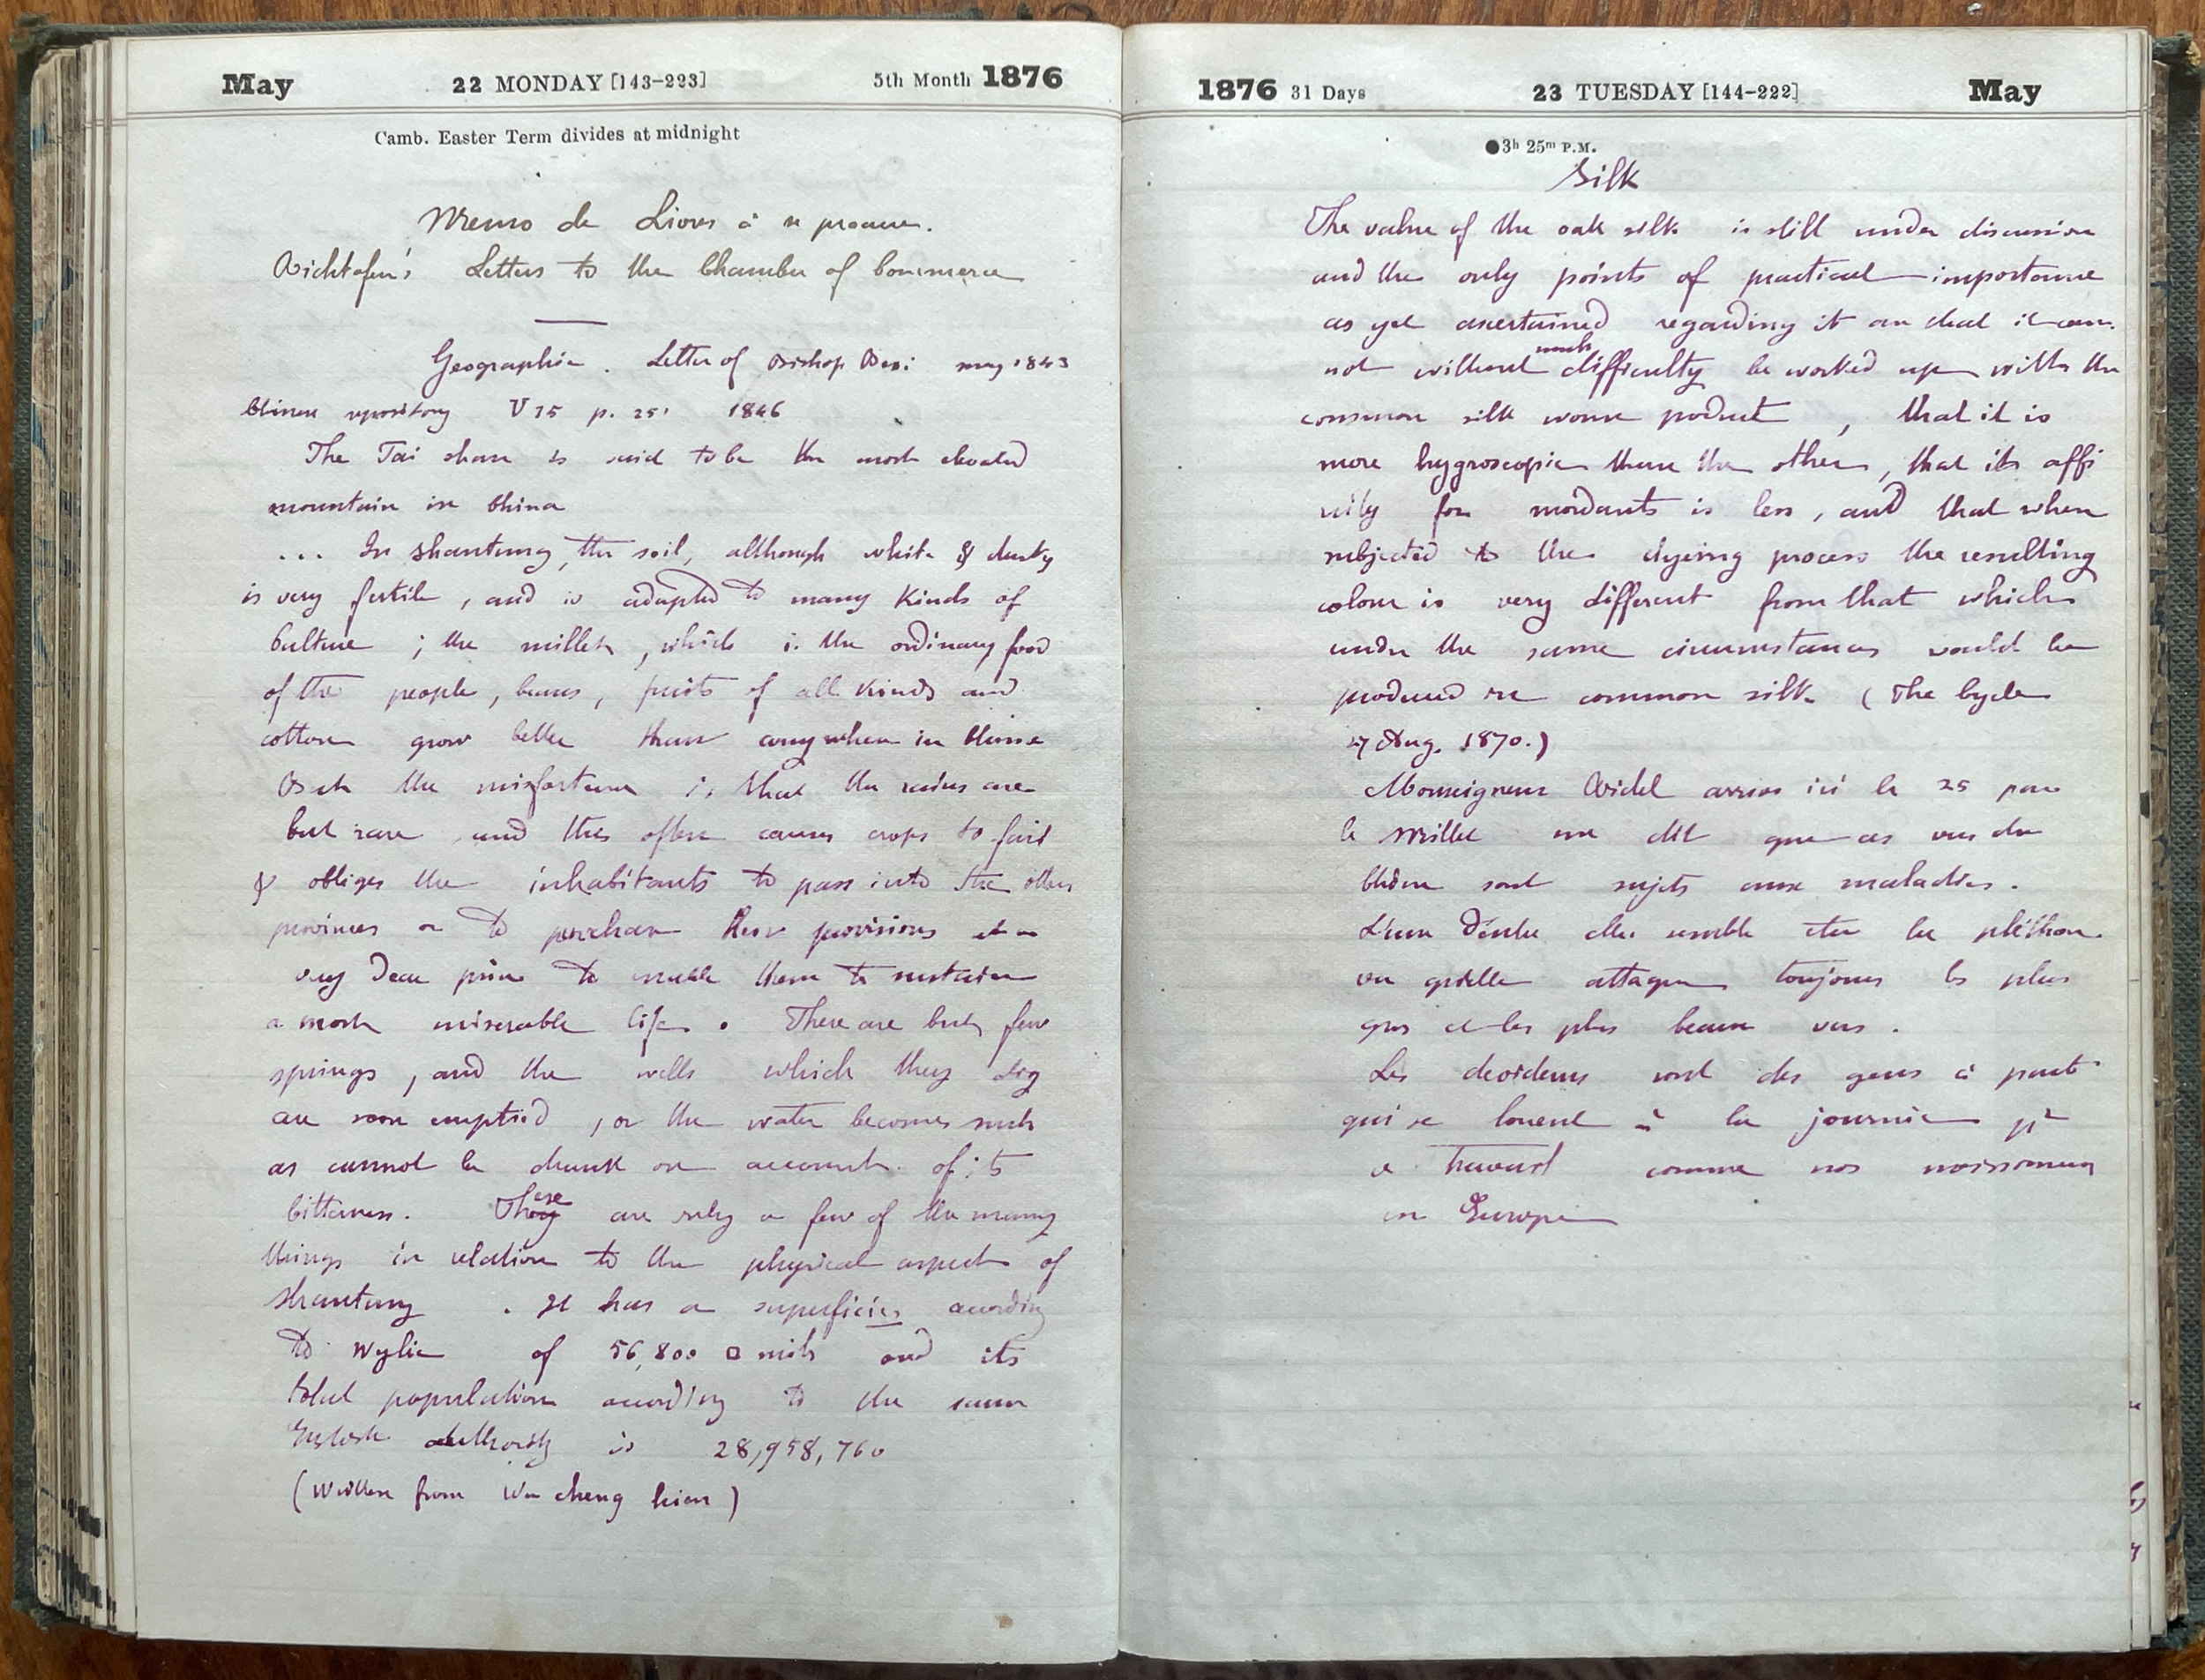 May 22 MONDAY [143-223] 5th Month 1876
Camb. Easter Term divides at midnight
Memo de Livres à se procurer.
Richtofen's Letters to the Chamber of Commerce
Geographie. Letter of Bishop Besi may 1843
Chinese repository V 15 p. 25 1846
The Tai shan is said to be the most elevated
mountain in China
... In Shantung, the soil, although white & dusty
is very fertile, and is adapted to many kinds of
Culture; the millet, which is the ordinary food
of the people, beans, fruits of all kinds and
cotton grow better than anywhere in China
But the misfortune is that the rains are
but rare and this often causes crops to fail
& obliges the inhabitants to pass into the other
provinces or to purchase their provisions at a
very dear price to enable them to sustain
a most miserable life. There are but few
springs, and the wells which they dig
are soon emptied, or the water becomes such
as cannot be drunk on account of its
bitterness. These are only a few of the many
things in relation to the physical aspect of
Shantung. It has a superficies acording
to Wylie of 56,800 □ miles and its
total population acording to the same
English authority is 28,958,760
(Written from Wu cheng hien)
1876 31 Days 23 TUESDAY [144-222] May
●3h 25m P.M.
Silk
The value of the oak silk is still under discussion
and the only points of practical importance
as yet ascertained regarding it are that it can
not without much difficulty be worked up with the
common silk worm product, that it is
more hygroscopic than the other, that its affi
nity for mordants is less, and that when
subjected to the dyeing process the resulting
colour is very different from that which
under the same circumstances would be
produced in common silk (The Cycle
27 Aug. 1870.)
Monseigneur Ridel arrivé ici le 25 par
le Millet me dit que ces vers du
Chêne sont sujets aux maladies.
L'une d'entre elles semble être la pléthore.
vu qu'elle attaque toujours les plus
gros et les plus beaux vers.
Les devideurs sont des gens à part
qui se louent à la journée pr
ce travail comme nos moissonneurs
en Europe